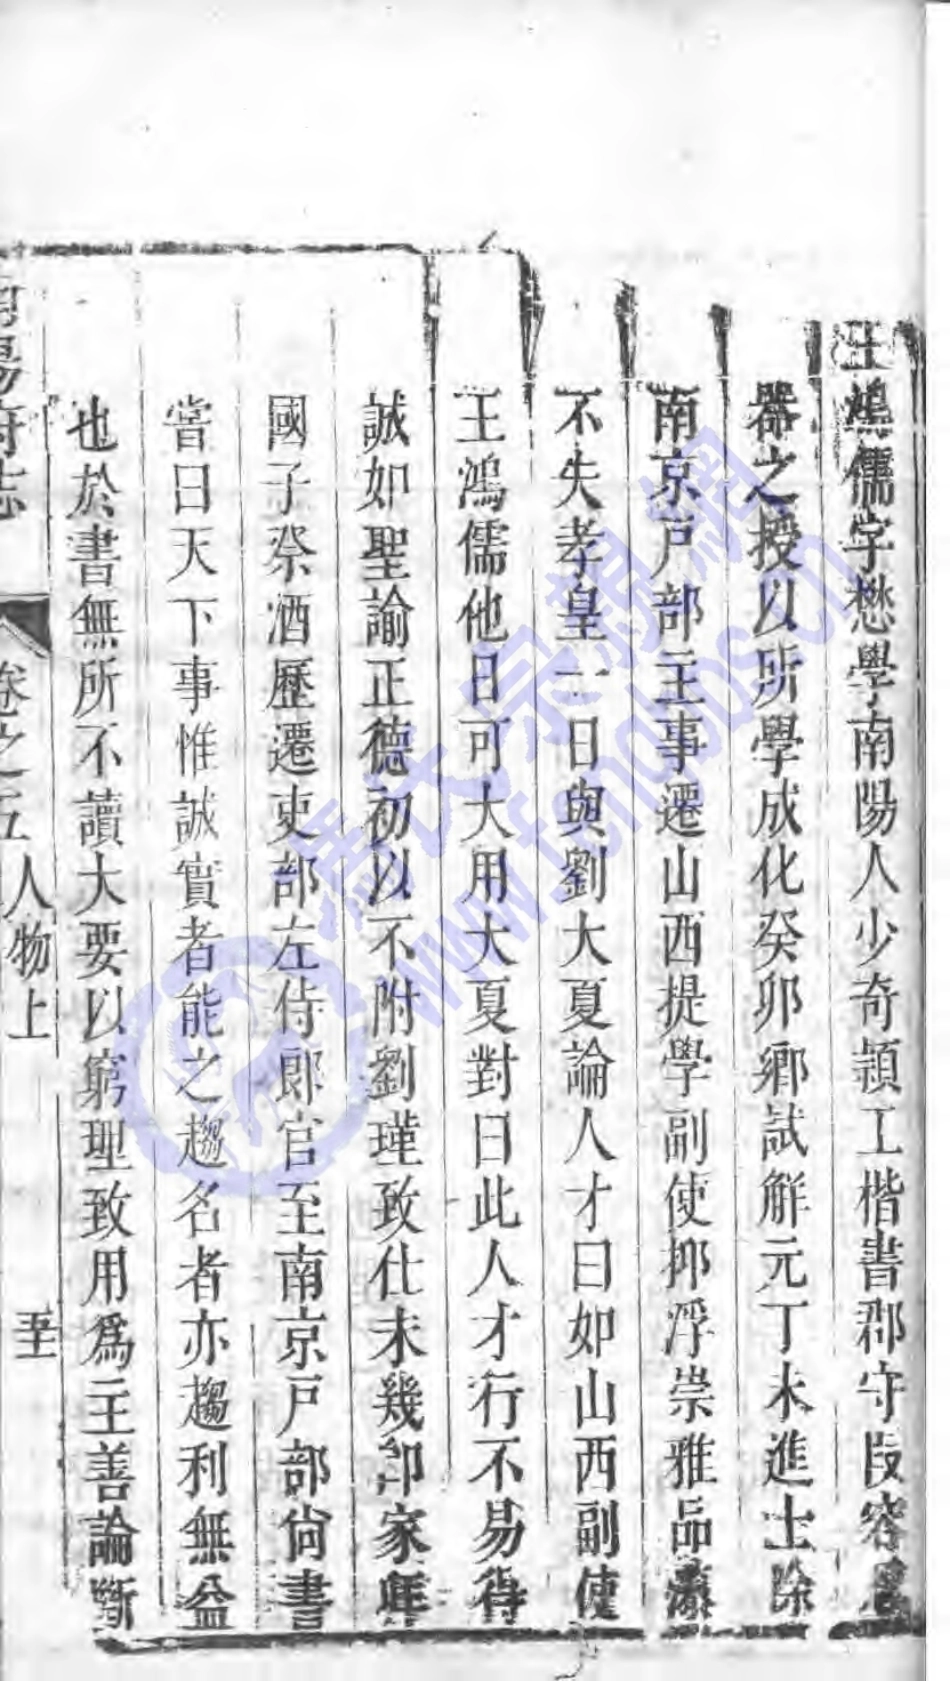 王鴻儒字懋學南陽人少奇穎工楷書郡守段容
器之授以所學成化癸卯鄉試解元丁未進士除
南京戸部主事遷山西提學副使抑浮崇雅品藻
不失孝皇一日與劉大夏論人才曰如山西副使
王鴻儒他日可大用大夏對曰此人才行不易得
誠如聖諭正德初以不附劉瑾致仕未幾卽家
國子祭酒歷遷吏部左侍郎官至南京戸部尙書
嘗曰天下事惟誠實者能之趨名者亦趨利無益
也於書無所不讀大要以窮理致用爲主善論斷
南陽府志 卷之五 人物上
www.fenbbs.cn